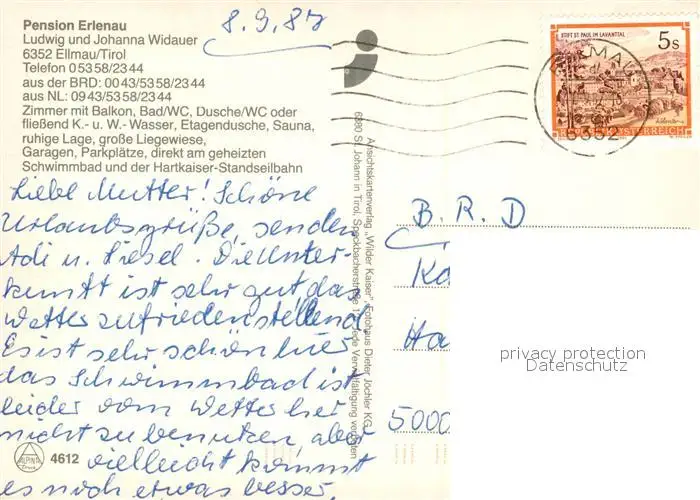 Pension Erlenau
Ludwig und Johanna Widauer
6352 Ellmau/Tirol
Telefon 0 53 58/23 44
aus der BRD: 00 43/53 58/23 44
aus NL: 09 43/53 58/23 44
Zimmer mit Balkon, Bad/WC, Dusche/WC oder
fließend K.- u. W.- Wasser, Etagendusche, Sauna,
ruhige Lage, große Liegewiese,
Garagen, Parkplätze, direkt am geheizten
Schwimmbad und der Hartkaiser-Standseilbahn
8.9.87
Liebe Mutter! Schöne
Urlaubsgrüße, senden
Adi u. Liesel. Die Unter-
kunft ist sehr gut das
Wetter zufriedenstellend.
Es ist sehr schön hier
das Schwimmbad ist
leider vom Wetter her
nicht zu benutzen, aber
vielleicht kommt
es noch etwas besser.
ALPINA
4612
Ansichtskartenverlag „Wilder Kaiser", Fotohaus Dieter Jöchler KG,
6380 St. Johann in Tirol, Speckbacherstraße Jede Vervielfältigung verboten
STIFT ST. PAUL IM LAVANTTAL
5s
REPUBLIK ÖSTERREICH
ELLMAU
6352
B. R. D
Ka
Ha
5000
privacy protection
Datenschutz